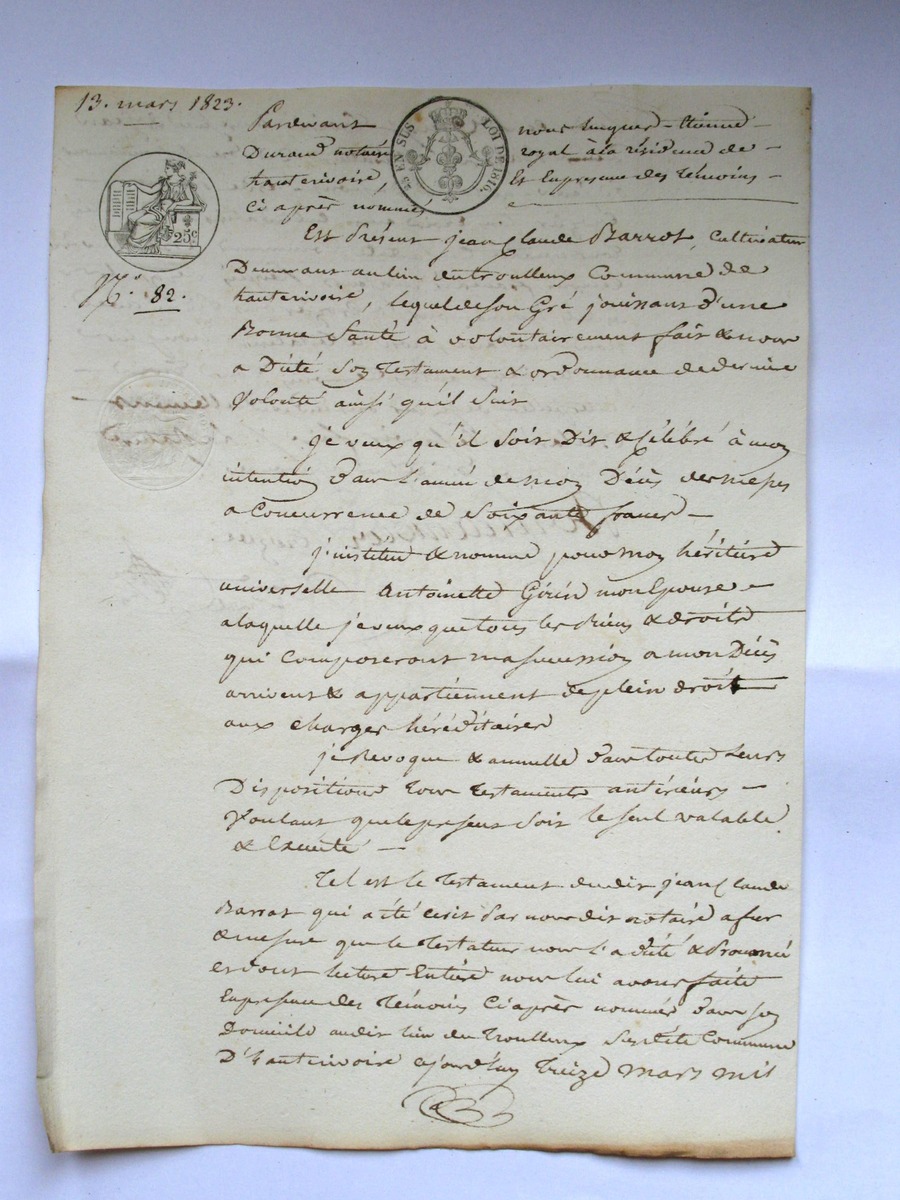 13. mars 1823.
Pardevant nous Jacques Etienne
Durand notaire royal à la résidence de
hauterivoire, Et En presence des témoins
Ci après nommés
EN SUS LOI DE 1816
25c
N.° 82.
Est Présent jean Claude Barrot, Cultivateur
Demeurant au lieu du troulleux Commune de
hauterivoire, lequel de son Gré jouissant d'une
Bonne Santé à volontairement fait & nous
a Dicté Son Testament & ordonnance de dernière
Volonté ainsi qu'il suit
je veux qu'il soit Dit & Célébré à mon
intention dans L'année de mon Décès des messes
a Concurrence de Soixante francs
j'institue & nomme pour mon héritière
universelle Antoinette Girin mon Epouse
a laquelle je veux que tous les Biens & droits
qui Composeront ma succession a mon Décès
arrivent & appartiennent de plein droit
aux Charges héréditaires
je Revoque & annulle dans toutes Leurs
Dispositions Tous Testaments antérieurs
Voulant que le present Soit le seul valable
& Exécuté
Tel est le Testament dudit jean Claude
Barrot qui a été écrit Par nous dit notaire a fur
& mesure que le Testateur nous L'a dicté & Prononcé
et dont lecture Entière nous lui avons faite
En presence des témoins Ci après nommés dans son
Domicile audit lieu du Troulleux Susdite Commune
D'hauterivoire ajourd'huy Treize mars mil